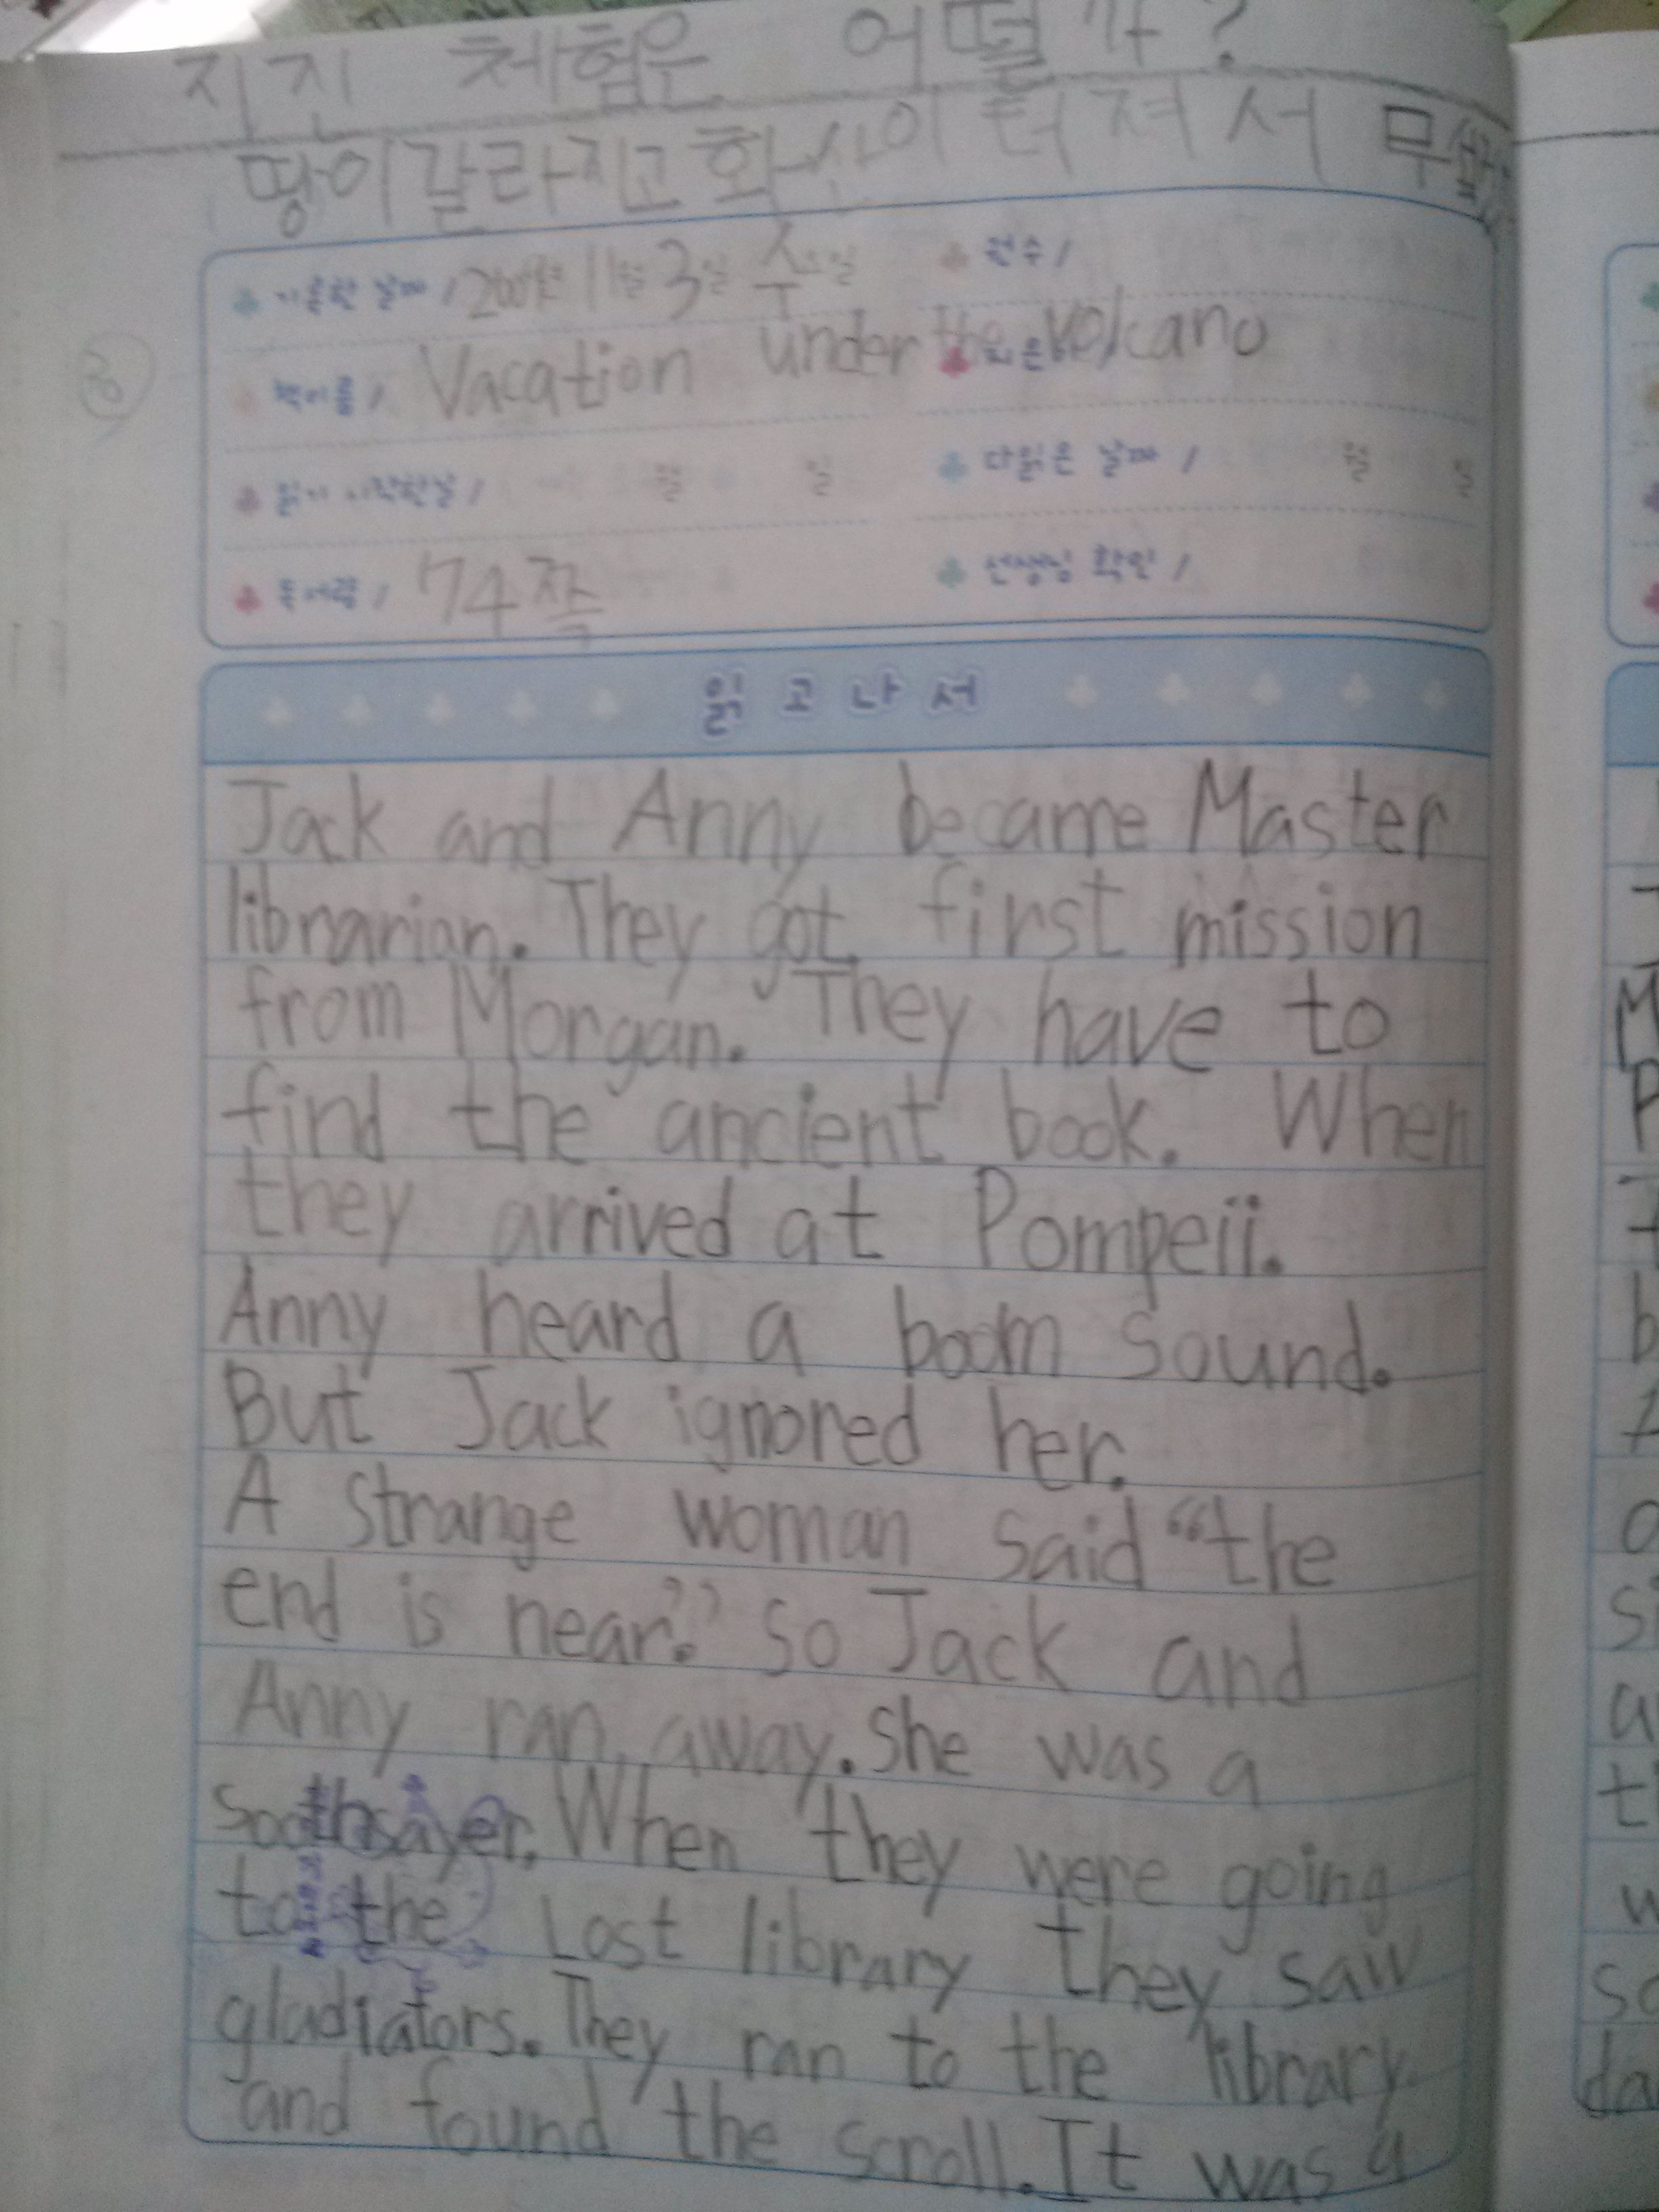 지진 체험은 어떨까?
땅이 갈라지고 화산이 터져서
기록한 날짜 / 2009년 11월 3일 수요일
권수 /
책이름 / Vacation under the volcano
지은이 /
읽기 시작한날 / 월 일
다읽은 날짜 / 월 일
독서량 / 74쪽
선생님 확인 /
읽고나서
Jack and Anny became Master
librarian. They got first mission
from Morgan. They have to
find the ancient book. When
they arrived at Pompeii.
Anny heard a boom sound.
But Jack ignored her.
A strange woman said "the
end is near." So Jack and
Anny ran away. She was a
soothsayer. When they were going
to the Lost library they saw
gladiators. They ran to the library
and found the scroll. It was a